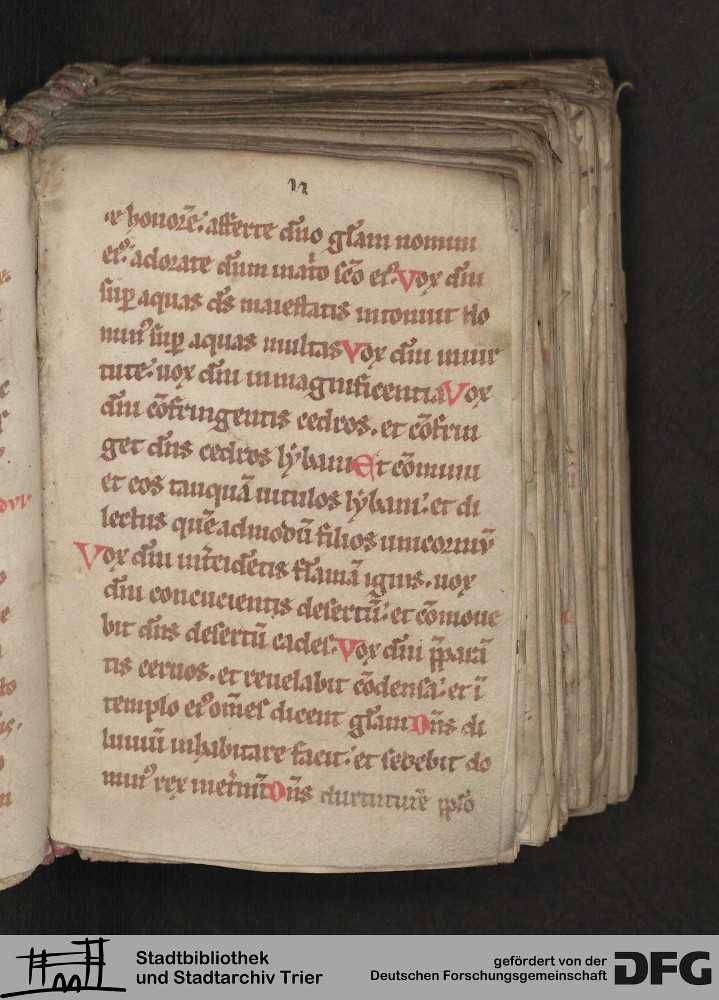 et honorē: afferte dn̄o glām nomini
eiꝰ: adorate dn̄m in at̄o scō eiꝰ. Vox dn̄i
sup̱ aquas ds̄ maiestatis intonuit do
minꝰ sup̱ aquas multas Vox dn̄i in uir
tute: uox dn̄i in magnificentia Vox
dn̄i cōfringentis cedros. et cōfrin
get dn̄s cedros lẏbani Et cōminu
et eos tanquā uitulos lẏbani: et di
lectus quēadmodū filios unicorniū
Vox dn̄i int̄cidētis flāmā ignis. uox
dn̄i concucientis desertū: et cōmoue
bit dn̄s desertū cades. Vox dn̄i p̄parā
tis ceruos. et reuelabit cōdensa: et ī
templo eiꝰ om̄es dicent glām Dn̄s di
luuiū inhabitare facit: et sedebit do
minꝰ rex inet̄nū Dn̄s uirtutē pplō
Stadtbibliothek
und Stadtarchiv Trier
gefördert von der
Deutschen Forschungsgemeinschaft
DFG